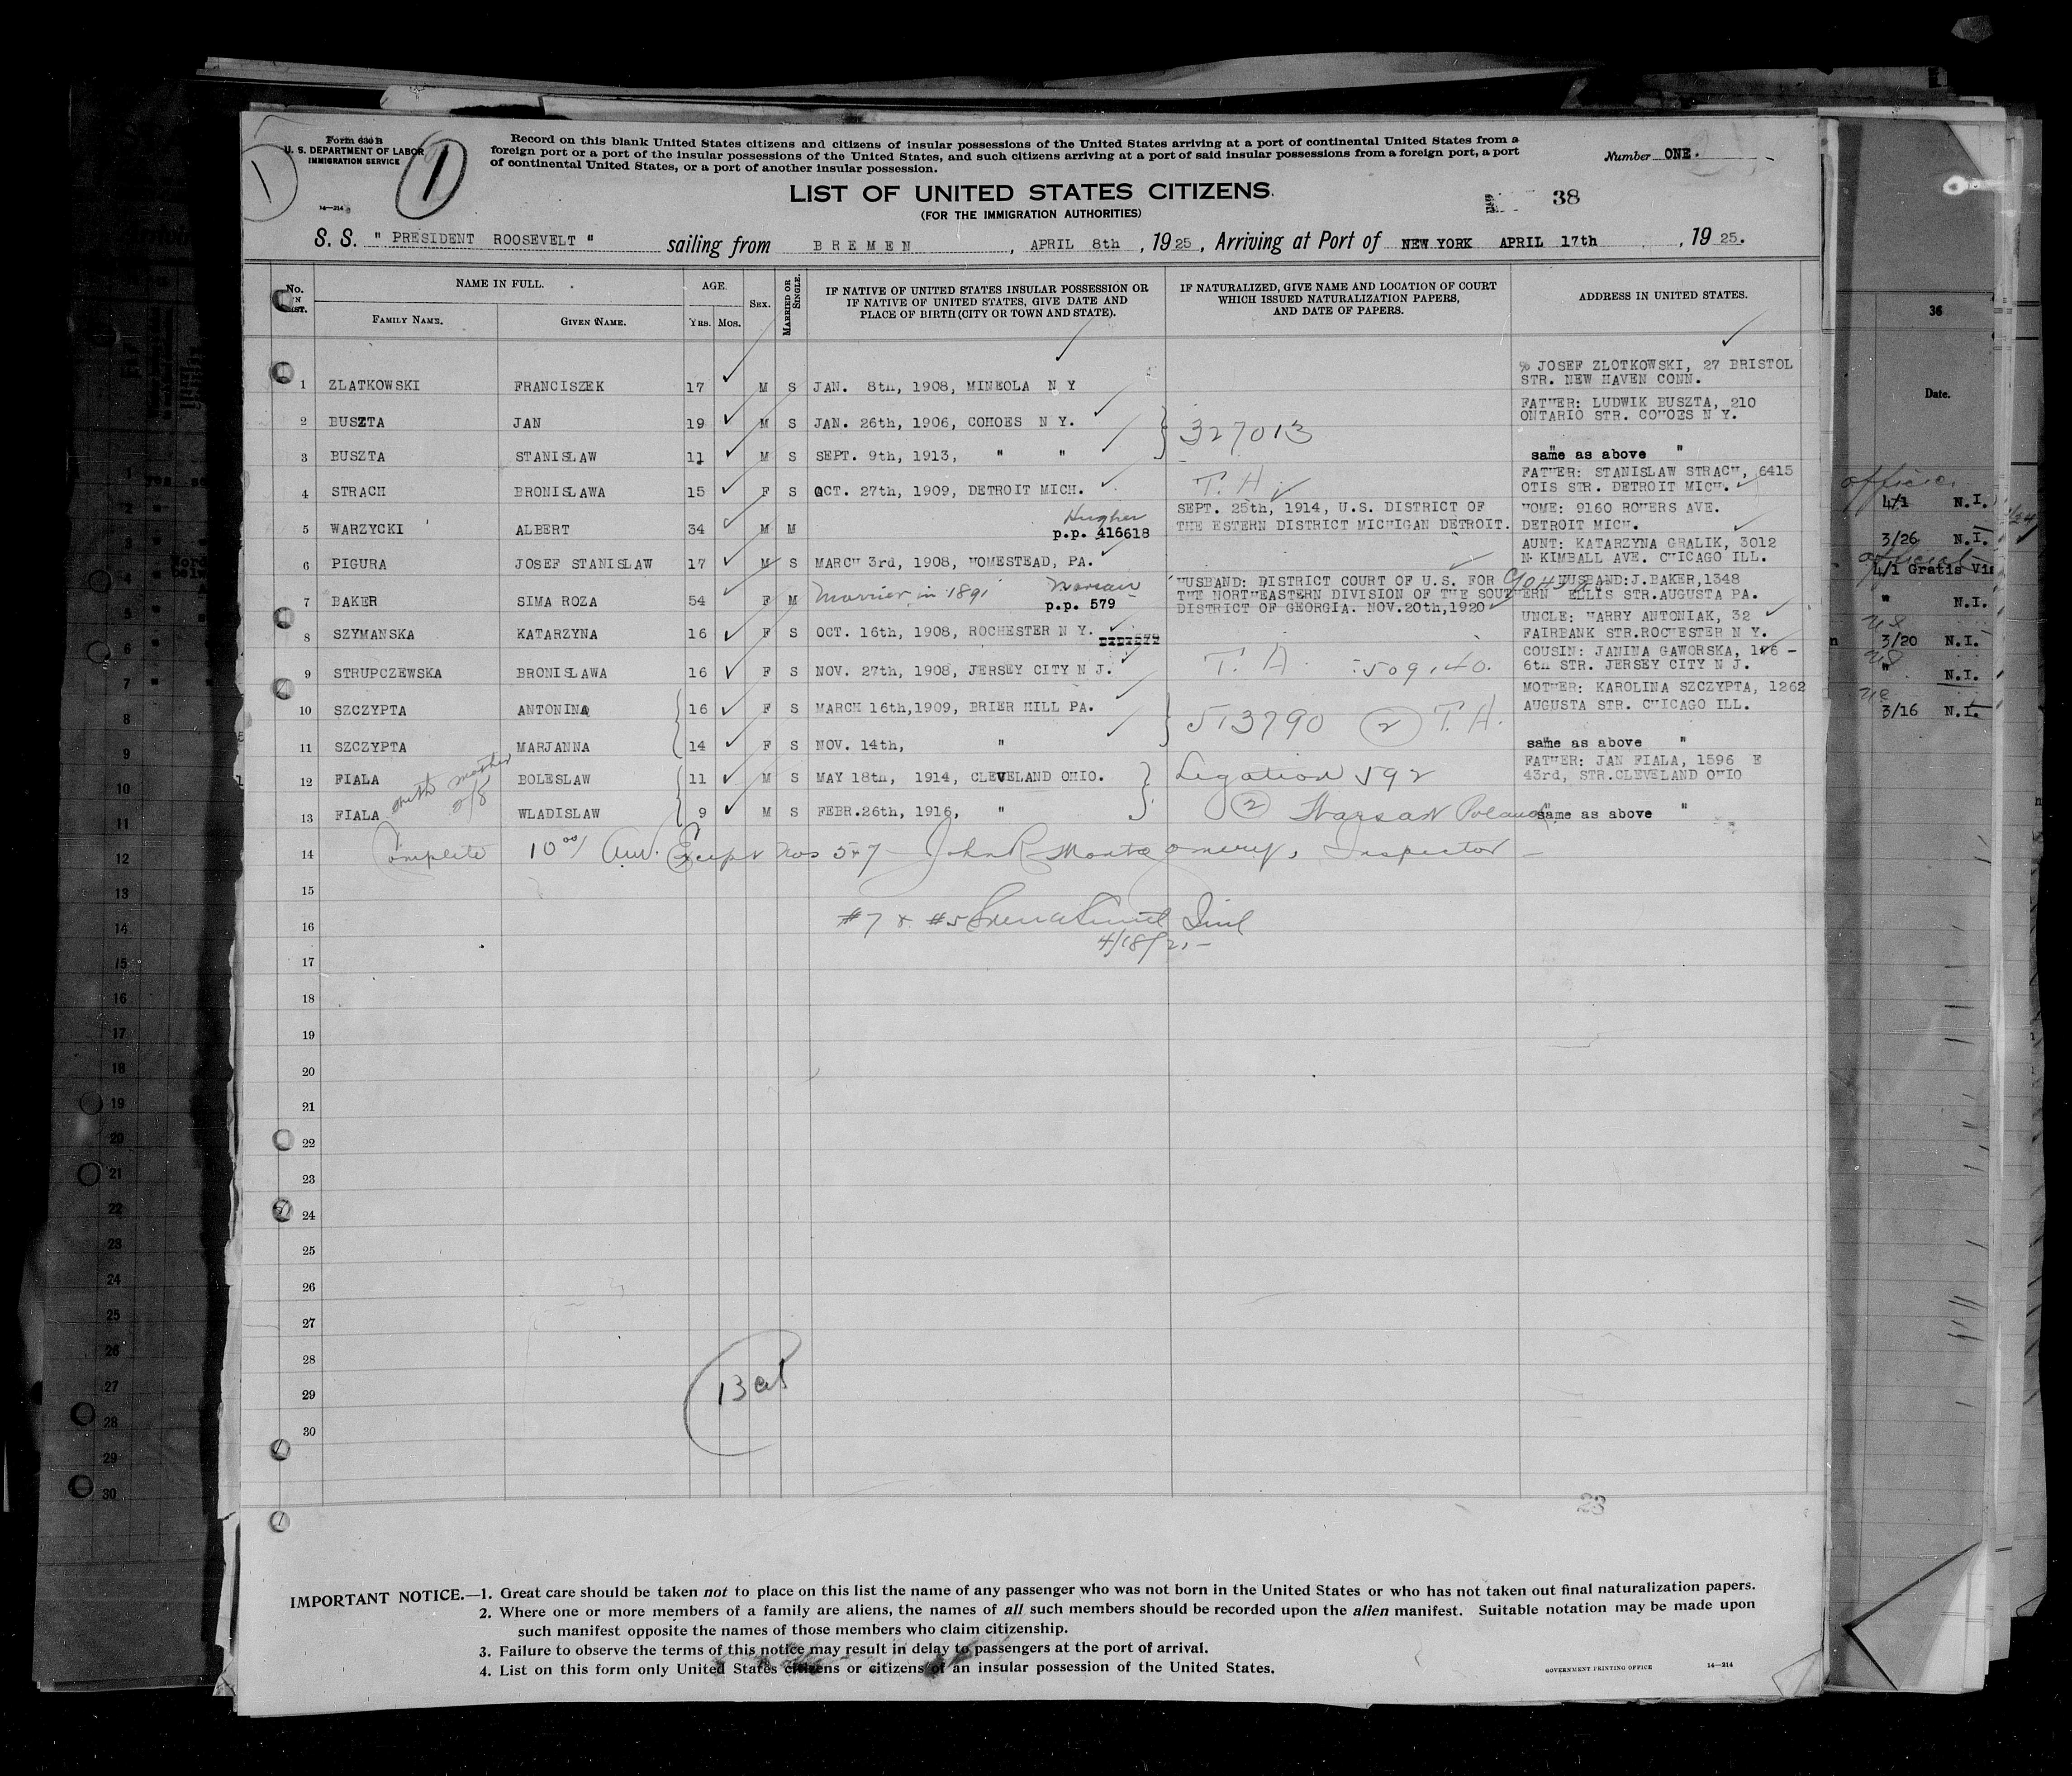 Form 630 B
U. S. DEPARTMENT OF LABOR
IMMIGRATION SERVICE
1
1
Record on this blank United States citizens and citizens of insular possessions of the United States arriving at a port of continental United States from a
foreign port or a port of the insular possessions of the United States, and such citizens arriving at a port of said insular possessions from a foreign port, a port
of continental United States, or a port of another insular possession.
Number ONE.
LIST OF UNITED STATES CITIZENS.
(FOR THE IMMIGRATION AUTHORITIES)
38
S. S. " PRESIDENT ROOSEVELT " sailing from BREMEN, APRIL 8th, 1925, Arriving at Port of NEW YORK APRIL 17th, 1925.
NAME IN FULL. AGE. SEX. MARRIED OR SINGLE.
FAMILY NAME. GIVEN NAME. YRS. MOS.
IF NATIVE OF UNITED STATES INSULAR POSSESSION OR
IF NATIVE OF UNITED STATES, GIVE DATE AND
PLACE OF BIRTH (CITY OR TOWN AND STATE).
IF NATURALIZED, GIVE NAME AND LOCATION OF COURT
WHICH ISSUED NATURALIZATION PAPERS,
AND DATE OF PAPERS.
ADDRESS IN UNITED STATES.
1 ZLATKOWSKI FRANCISZEK 17 M S JAN. 8th, 1908, MINEOLA N Y
% JOSEF ZLOTKOWSKI, 27 BRISTOL
STR. NEW HAVEN CONN.
2 BUSZTA JAN 19 M S JAN. 26th, 1906, COHOES N Y. 327013
FATHER: LUDWIK BUSZTA, 210
ONTARIO STR. COHOES N Y.
3 BUSZTA STANISLAW 11 M S SEPT. 9th, 1913, " "
same as above "
4 STRACH BRONISLAWA 15 F S OCT. 27th, 1909, DETROIT MICH. T. H.
FATHER: STANISLAW STRACH, 6415
OTIS STR. DETROIT MICH.
5 WARZYCKI ALBERT 34 M M Hugher
p.p. 416618
SEPT. 25th, 1914, U.S. DISTRICT OF
THE ESTERN DISTRICT MICHIGAN DETROIT.
HOME: 9160 ROHERS AVE.
DETROIT MICH.
6 PIGURA JOSEF STANISLAW 17 M S MARCH 3rd, 1908, HOMESTEAD, PA.
AUNT: KATARZYNA GRALIK, 3012
N KIMBALL AVE. CHICAGO ILL.
7 BAKER SIMA ROZA 54 F M Married in 1891 Warsaw
p.p. 579
HUSBAND: DISTRICT COURT OF U.S. FOR
THE NORTHEASTERN DIVISION OF THE SOUTHERN
DISTRICT OF GEORGIA. NOV.20th,1920
HUSBAND:J.BAKER,1348
ELLIS STR.AUGUSTA PA.
8 SZYMANSKA KATARZYNA 16 F S OCT. 16th, 1908, ROCHESTER N Y.
UNCLE: HARRY ANTONIAK, 32
FAIRBANK STR.ROCHESTER N Y.
9 STRUPCZEWSKA BRONISLAWA 16 F S NOV. 27th, 1908, JERSEY CITY N J. T. H. 509140.
COUSIN: JANINA GAWORSKA, 176 -
6th STR. JERSEY CITY N J.
10 SZCZYPTA ANTONINA 16 F S MARCH 16th,1909, BRIER HILL PA. 513790 2 T. H.
MOTHER: KAROLINA SZCZYPTA, 1262
AUGUSTA STR. CHICAGO ILL.
11 SZCZYPTA MARJANNA 14 F S NOV. 14th, "
same as above "
12 FIALA BOLESLAW 11 M S MAY 18th, 1914, CLEVELAND OHIO. Legation 592
FATHER: JAN FIALA, 1596 E
43rd, STR.CLEVELAND OHIO
with mother
2/8
13 FIALA WLADISLAW 9 M S FEBR.26th, 1916, " 2 Warsaw Poland
same as above "
14 Complete 10 00/ Am. Except Nos 5 & 7 - John R Montgomery, Inspector -
15
16 #7 & #5
4/18/25
17
18
19
20
21
22
23
24
25
26
27
28
29
30
13
23
IMPORTANT NOTICE.—1. Great care should be taken not to place on this list the name of any passenger who was not born in the United States or who has not taken out final naturalization papers.
2. Where one or more members of a family are aliens, the names of all such members should be recorded upon the alien manifest. Suitable notation may be made upon
such manifest opposite the names of those members who claim citizenship.
3. Failure to observe the terms of this notice may result in delay to passengers at the port of arrival.
4. List on this form only United States citizens or citizens of an insular possession of the United States.
GOVERNMENT PRINTING OFFICE 14—214
36
Date.
4/1 N.I.
3/26 N.I.
4/1 Gratis
" N.I.
3/20 N.I.
" N.I.
3/16 N.I.